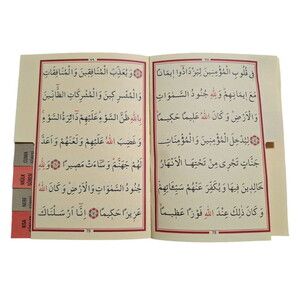 فِى قُلُوبِ الْمُؤْمِنِينَ لِيَزْدَادُٓوا اِيمَانًا
مَعَ اِيمَانِهِمْ وَلِلّٰهِ جُنُودُ السَّمٰوَاتِ
وَالْاَرْضِ وَكَانَ اللّٰهُ عَلِيمًا حَكِيمًا
لِيُدْخِلَ الْمُؤْمِنِينَ وَالْمُؤْمِنَاتِ
جَنَّاتٍ تَجْرِى مِنْ تَحْتِهَا الْاَنْهَارُ
خَالِدِينَ فِيهَا وَيُكَفِّرَ عَنْهُمْ سَيِّـَٔاتِهِمْ
وَكَانَ ذٰلِكَ عِنْدَ اللّٰهِ فَوْزًا عَظِيمًا
وَيُعَذِّبَ الْمُنَافِقِينَ وَالْمُنَافِقَاتِ
وَالْمُشْرِكِينَ وَالْمُشْرِكَاتِ الظَّٓانِّينَ
بِاللّٰهِ ظَنَّ السَّوْءِ عَلَيْهِمْ دَٓائِرَةُ السَّوْءِ
وَغَضِبَ اللّٰهُ عَلَيْهِمْ وَلَعَنَهُمْ وَاَعَدَّ
لَهُمْ جَهَنَّمَ وَسَٓاءَتْ مَصِيرًا وَلِلّٰهِ
جُنُودُ السَّمٰوَاتِ وَالْاَرْضِ وَكَانَ اللّٰهُ
عَزِيزًا حَكِيمًا اِنَّٓا اَرْسَلْنَاكَ